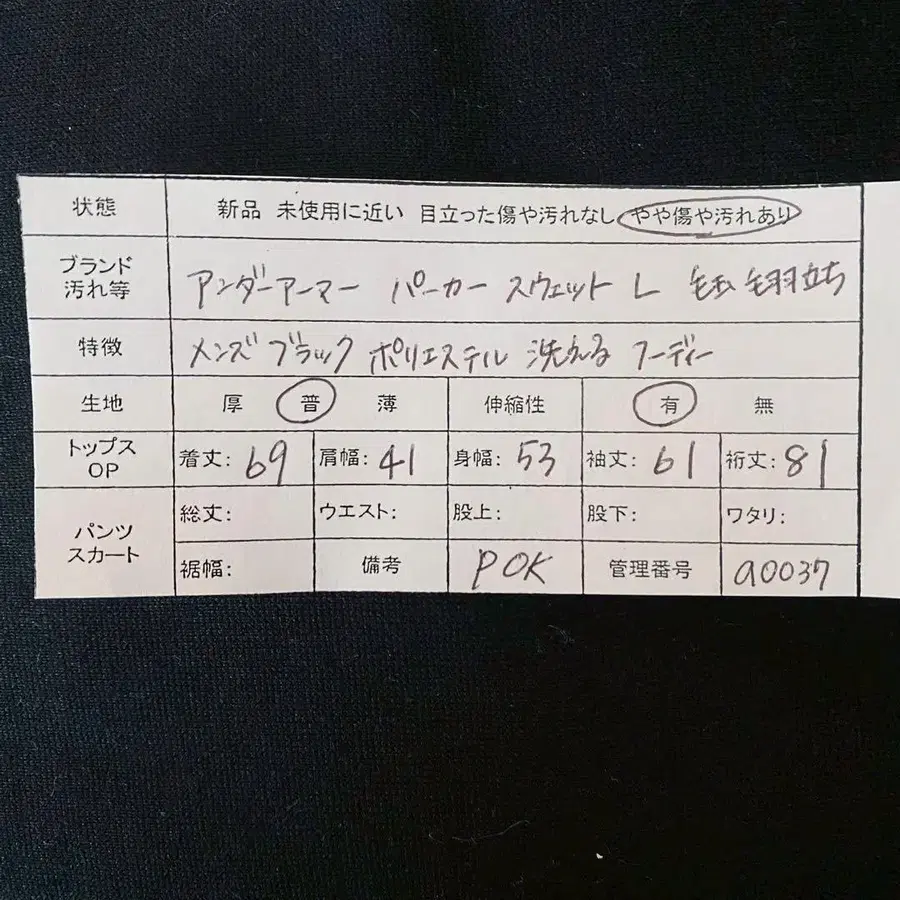 状態 新品 未使用に近い 目立った傷や汚れなし やや傷や汚れあり
ブランド
汚れ等 アンダーアーマー パーカー スウェット L 毛玉 毛羽立ち
特徴 メンズ ブラック ポリエステル 洗える フーディー
生地 厚 普 薄 伸縮性 有 無
トップス
OP 着丈: 69 肩幅: 41 身幅: 53 袖丈: 61 裄丈: 81
パンツ
スカート 総丈: ウエスト: 股上: 股下: ワタリ:
裾幅: 備考 POK 管理番号 a0037